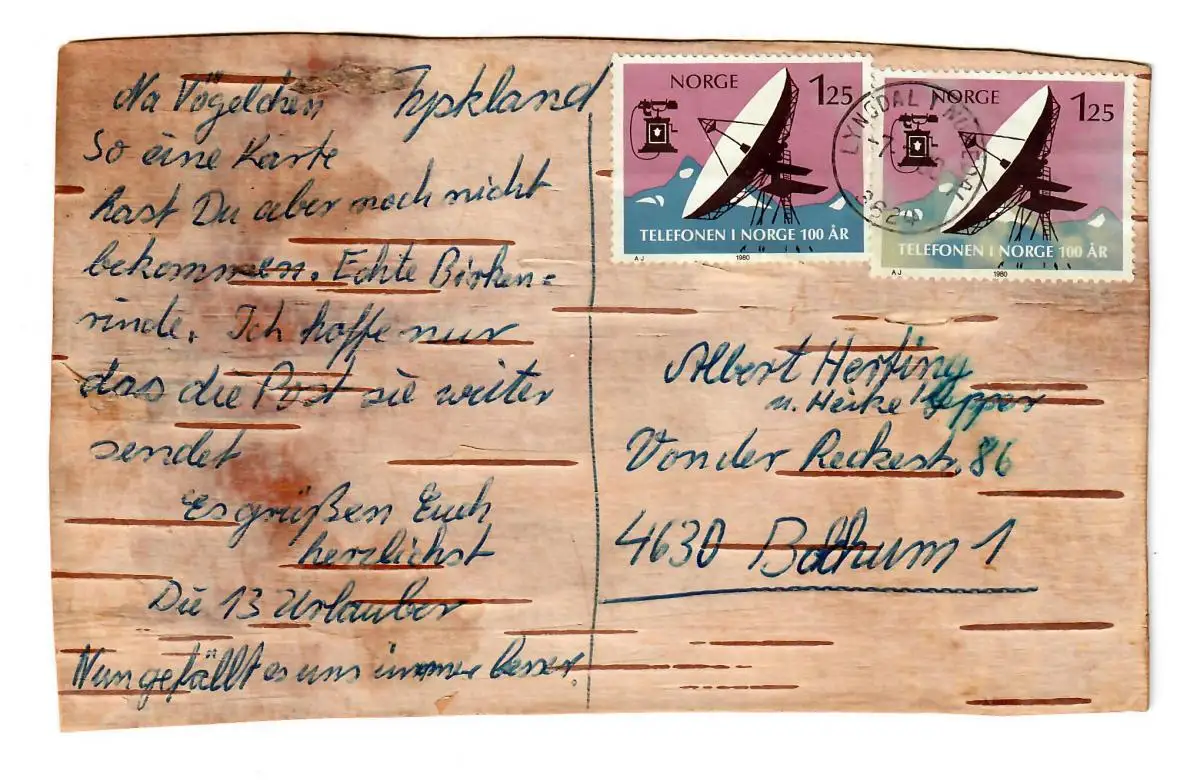 Na Vögelchen
So eine Karte
hast Du aber noch nicht
bekommen. Echte Birken=
rinde. Ich hoffe nur
das die Post sie weiter
sendet
Es grüßen Euch
herzlichst
Die 13 Urlauber
Nun gefällt es uns immer besser.
Tyskland
NORGE 125
TELEFONEN I NORGE 100 ÅR
AJ 1980
NORGE 125
TELEFONEN I NORGE 100 ÅR
AJ 1980
LYNGDAL I NUMEDAL
3624
Albert Herting
u. Heike
Von der Reckestr. 86
4630 Bochum 1